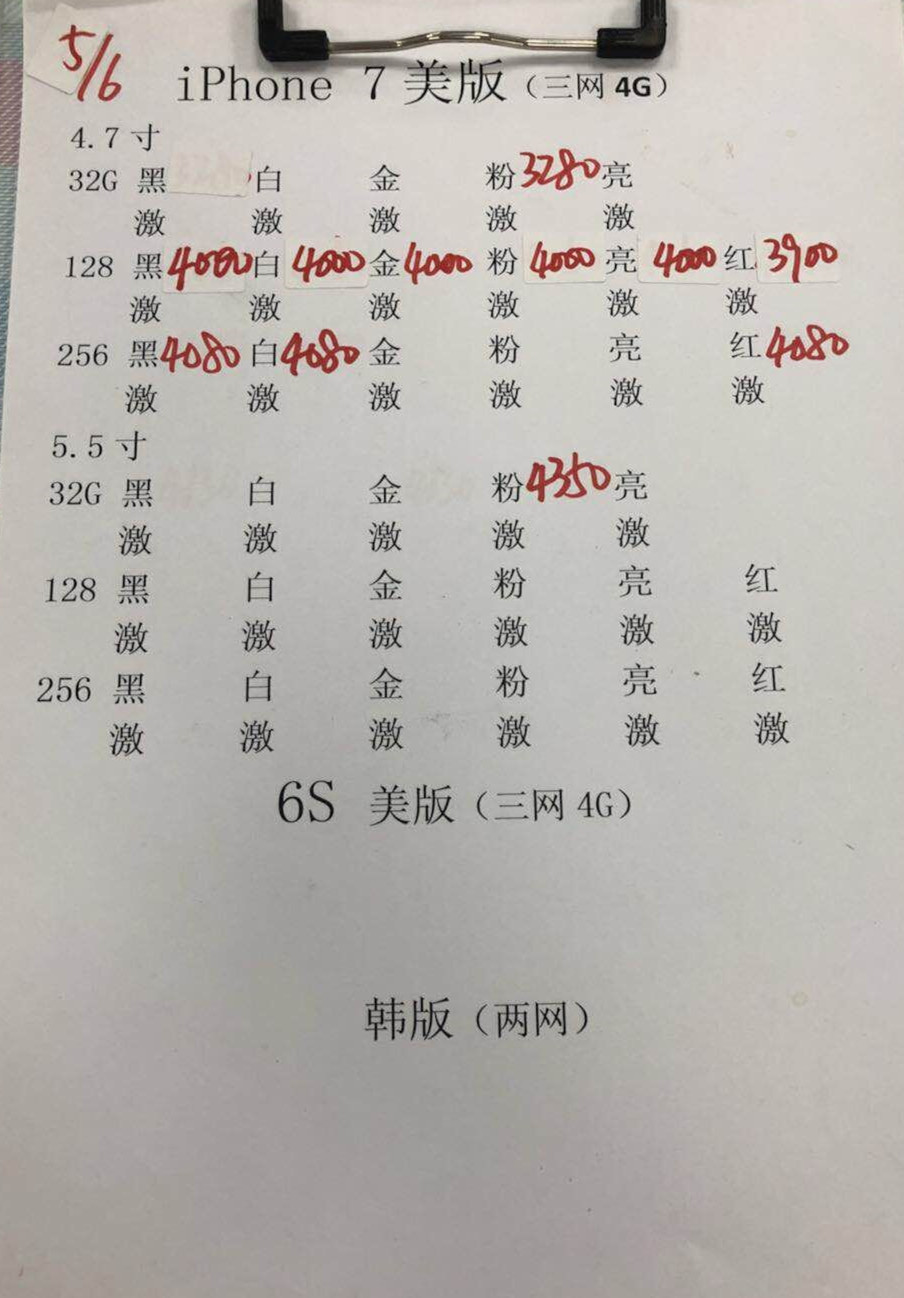 5/6
iPhone 7 美版（三网 4G）
4.7 寸
32G 黑 白 金 粉 3280 亮
激 激 激 激 激
128 黑 4000 白 4000 金 4000 粉 4000 亮 4000 红 3900
激 激 激 激 激 激
256 黑 4080 白 4080 金 粉 亮 红 4080
激 激 激 激 激 激
5.5 寸
32G 黑 白 金 粉 4350 亮
激 激 激 激 激
128 黑 白 金 粉 亮 红
激 激 激 激 激 激
256 黑 白 金 粉 亮 红
激 激 激 激 激 激
6S 美版（三网 4G）
韩版（两网）